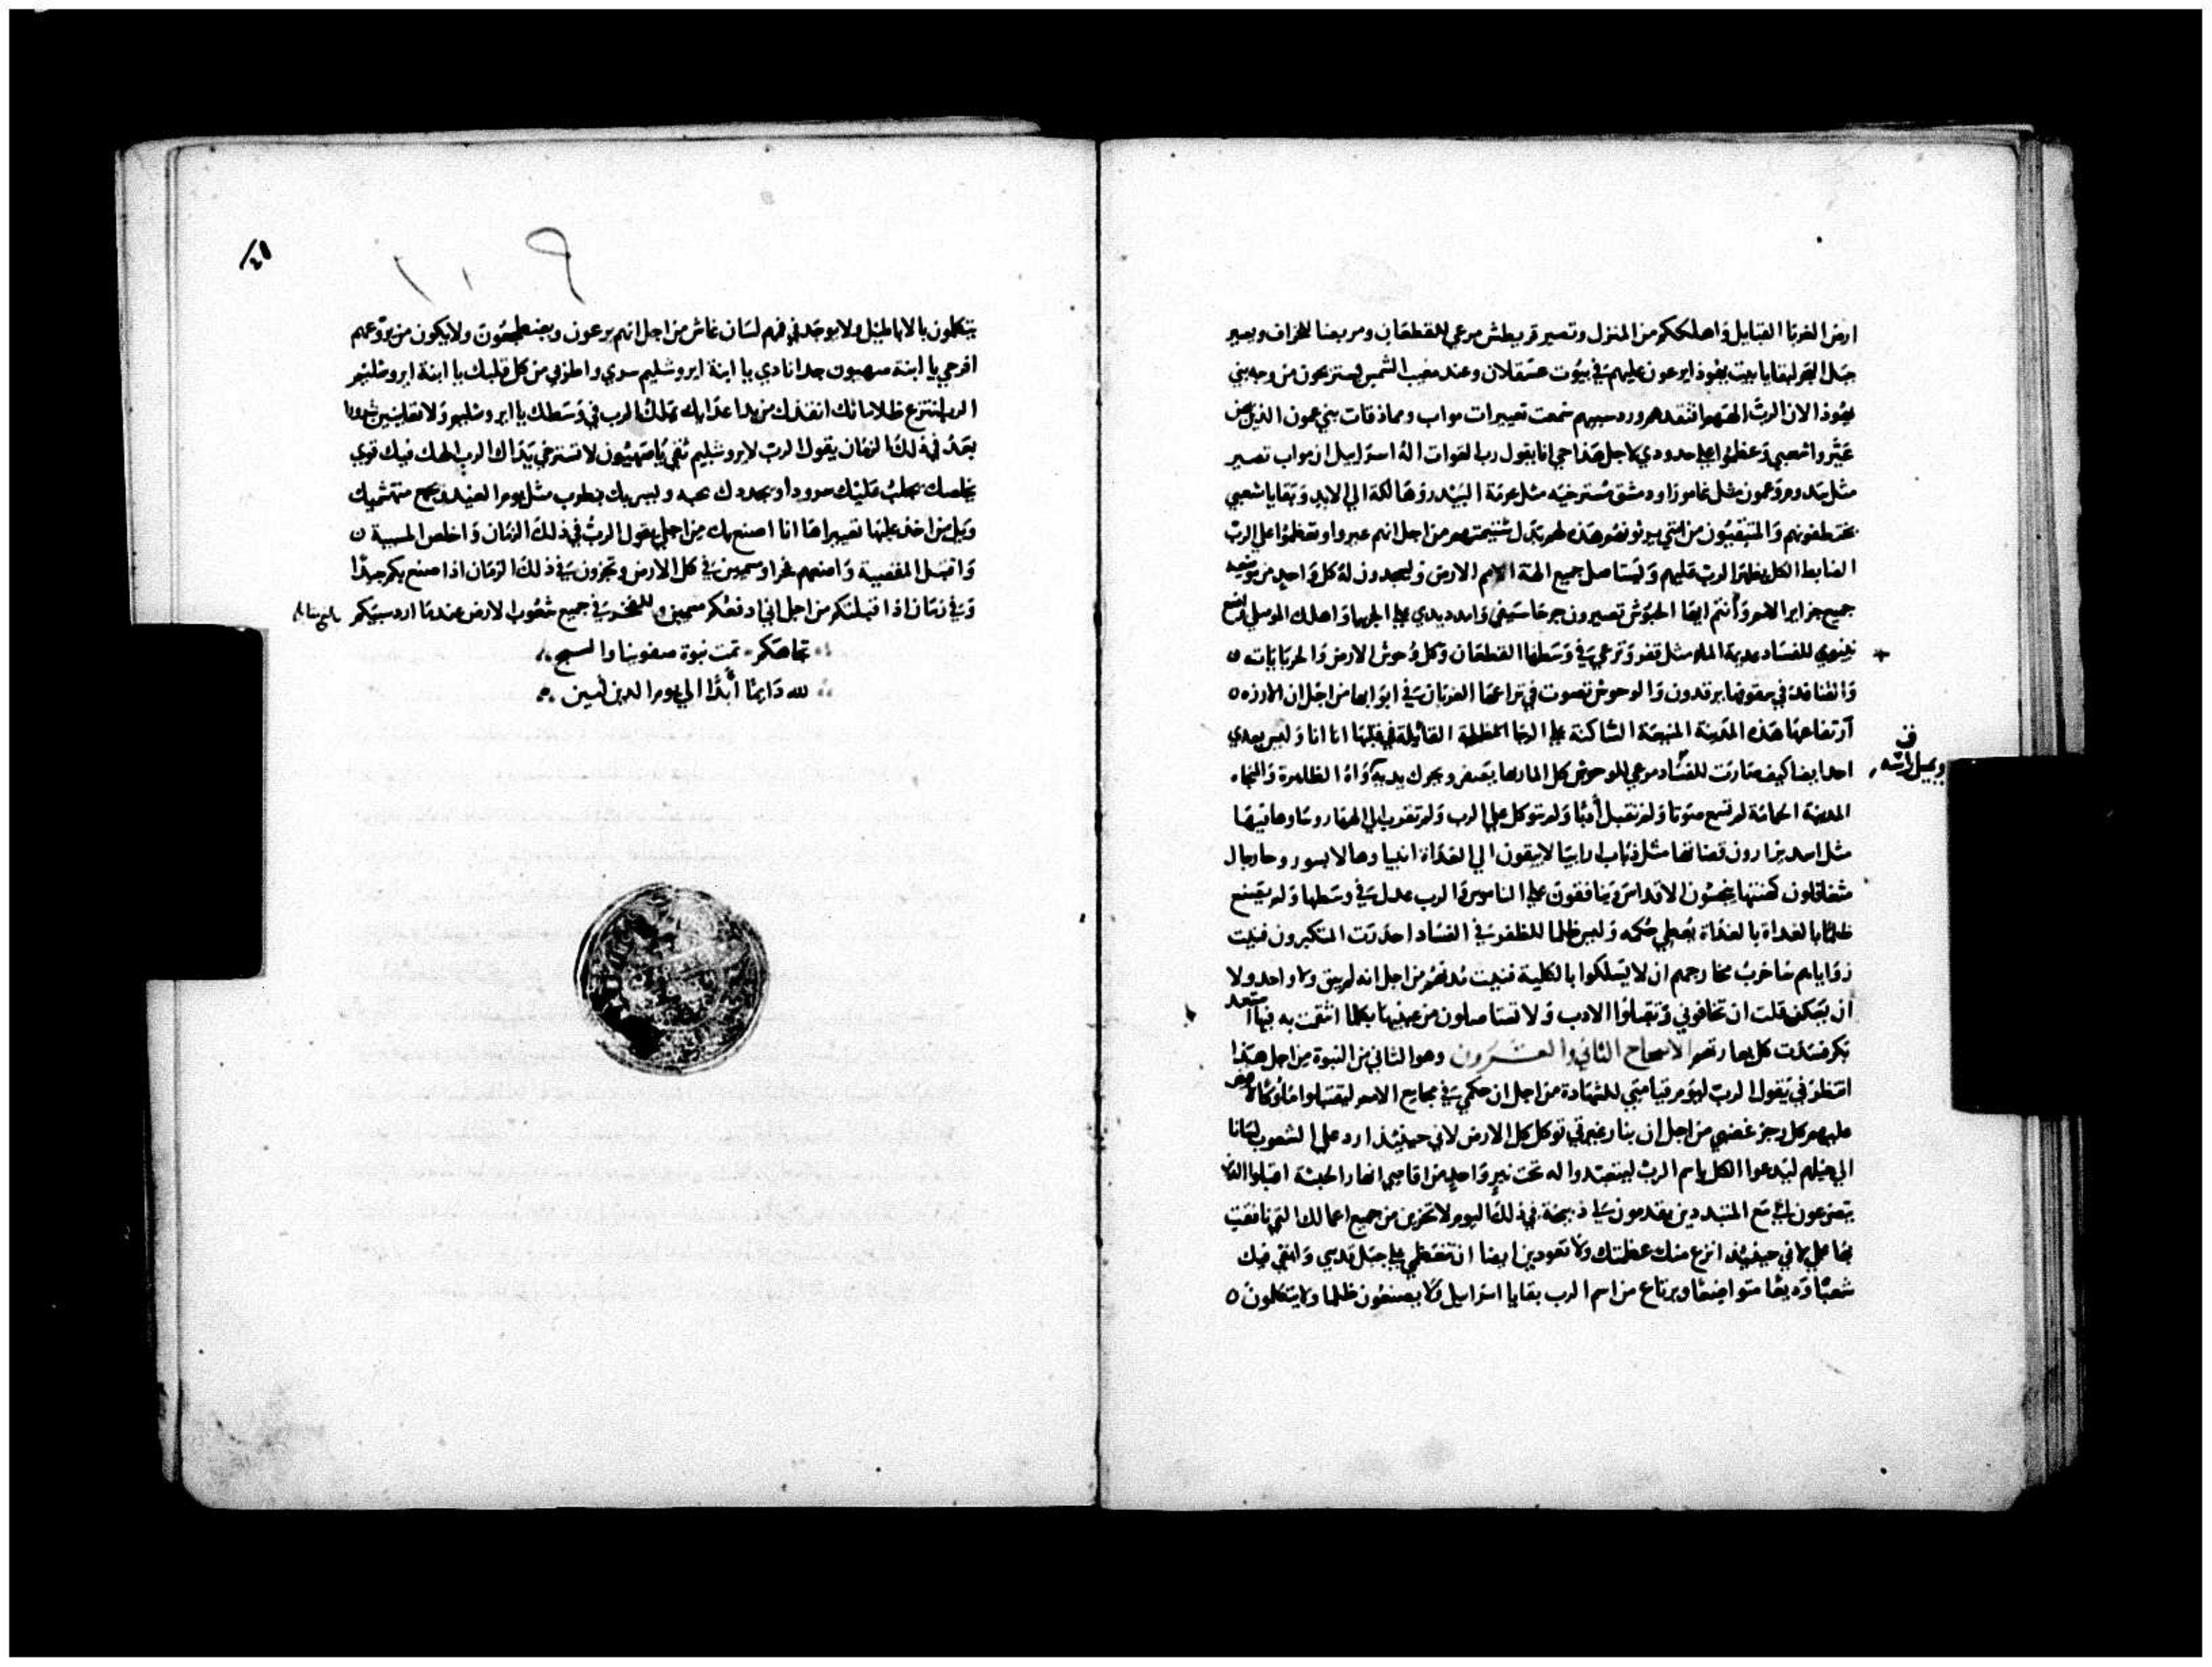 ارض الغربا القبايل واهلككم من المنزل وتصير قريطش مرعي للقطعان ومربضا للخراف ويصير
حبل البحر لبقايا بيت يهوذا يرعون عليهم في بيوت عسقلان وعند مغيب الشمس يستريحون من وجه بني
يهوذا لان الرب الههم افتقدهم ورد سبيهم سمعت تعييرات مواب ومماذقات بني عمون الذين
عيروا شعبي وعظموا علي حدودي لاجل هذا حي انا يقول رب القوات اله اسراييل ان مواب تصير
مثل سدوم وعمون مثل غامورا ودمشق مسترخيه مثل عرمة البيدر وهالكة الي الابد وبقايا شعبي
يختطفونهم والمتبقيون من امتي يرثونهم هذه لهم بدل شتيمتهم من اجل انهم عيروا وتعظموا علي الرب
الضابط الكل يظهر الرب عليهم ويستاصل جميع الهة الامم الارض وليسجدون له كل واحد من موضعه
جميع جزاير الامم وانتم ايضا الحبوش تصيرون جرحا سيفي وامدد يدي علي الجربيا واهلك الموصلي واضع
نينوي للفساد عديمة الماء مثل قفر وترعي في وسطها القطعان وكل وحوش الارض والحربابات
والقنافذ في سقوفها يرقدون والوحوش تصوت في نزاعها الغربان في ابوابها من اجل ان الارزه
ارتفاعها هذه المدينة المنيعة الساكنة علي الرجا المظلمة القايلة في قلبها انا انا وليس بعدي
احد ايضا كيف صارت للفساد مرعي للوحوش كل المار بها يصفر ويحرك يديه واه الظاهرة والنجاه
ف
ويميل راسه
المدينة الحمامة لم تسمع صوتا ولم تقبل ادبا ولم تتوكل علي الرب ولم تقرب الي الهها روساوها فيها
مثل اسد يزارون قضاتها مثل ذياب ارابيا لا يبقون الي الغداة انبياوها لابسو روحا رجال
متغافلون كهنتها ينجسون الاقداس وينافقون علي الناموس والرب عدل في وسطها ولم يصنع
ظلما بالغداة بالغداة يعطي حكمه وليس ظلما للظفر في الفساد احدرت المتكبرون فنيت
زواياهم ساخرب مخارجهم ان لا يسلكوا بالكلية فنيت مدنهم من اجل انه لم يبق ولا واحد ولا
ان يسكن قلت ان تخافوني وتقبلوا الادب ولا تستاصلون من عينيها بكلما انتقمت به فيها استعد
بكر فسدت كل بعارتهم الاصحاح الثاني والعشرون وهو الثاني من النبوة من اجل هذا
انتظرني يقول الرب ليوم قيامتي للشهادة من اجل ان حكمي في مجامع الامم لتقبلوا ملوكا لاصب
عليهم كل رجز غضبي من اجل ان بنار غيرتي توكل كل الارض لاني حينيذ ارد علي الشعوب لسانا
الي جيلهم ليدعوا الكل باسم الرب ليتعبدوا له تحت نير واحد من اقاصي انهار الحبشة اقبلوا الذين
يتضرعون الي مع المتبددين يقدمون لي ذبيحة في ذلك اليوم لا تخزين من جميع اعمالك التي نافقتي
بها علي لاني حينيذ انزع منك عظمتك ولا تعودين ايضا ان تتعظمي علي جبل قدسي وابقي فيك
شعبا وديعا متواضعا ويرتاع من اسم الرب بقايا اسراييل ولا يصنعون ظلما ولا يتكلون
١٠٩
يتكلمون بالاباطيل ولا يوجد في فمهم لسان غاش من اجل انهم يرعون ويضطجعون ولا يكون من يروعهم
افرحي يا ابنة صهيون جدا نادي يا ابنة ايروشليم سري واطربي من كل قلبك يا ابنة ايروشليم
الرب انتزع ظلاماتك انقذك من يد اعدايك ملك الرب في وسطك يا ايروشليم ولا تعاينين شرورا
بعد في ذلك الزمان يقول الرب لايروشليم ثقي يا صهيون لا تسترخي يداك الرب الهك فيك قوي
يخلصك يجلب عليك سرورا ويجددك بحبه ويسر بك بطرب مثل يوم العيد ويجمع منهشميك
ويل من اخذ عليها تعييرا ها انا اصنع بك من اجلي يقول الرب في ذلك الزمان واخلص المسبية
واقبل المقصية واضعهم فخرا وسميين في كل الارض وتخزون في ذلك الزمان اذا صنع بكم جيدا
وفي زمان اذا قبلتكم من اجل اني ادفعكم سميين وللفخر في جميع شعوب الارض عندما ارد سبيكم
تجاهكم تمت نبوة صفونيا والسبح
لله دايما ابدا الي يوم الدين امين